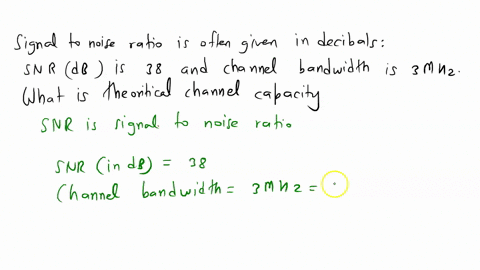 Signal to noise ratio is often given in decibals:
SNR (dB) is 38 and channel bandwidth is 3MHz.
What is theoritical channel capacity
SNR is signal to noise ratio
SNR (in dB) = 38
Channel bandwidth = 3MHz =